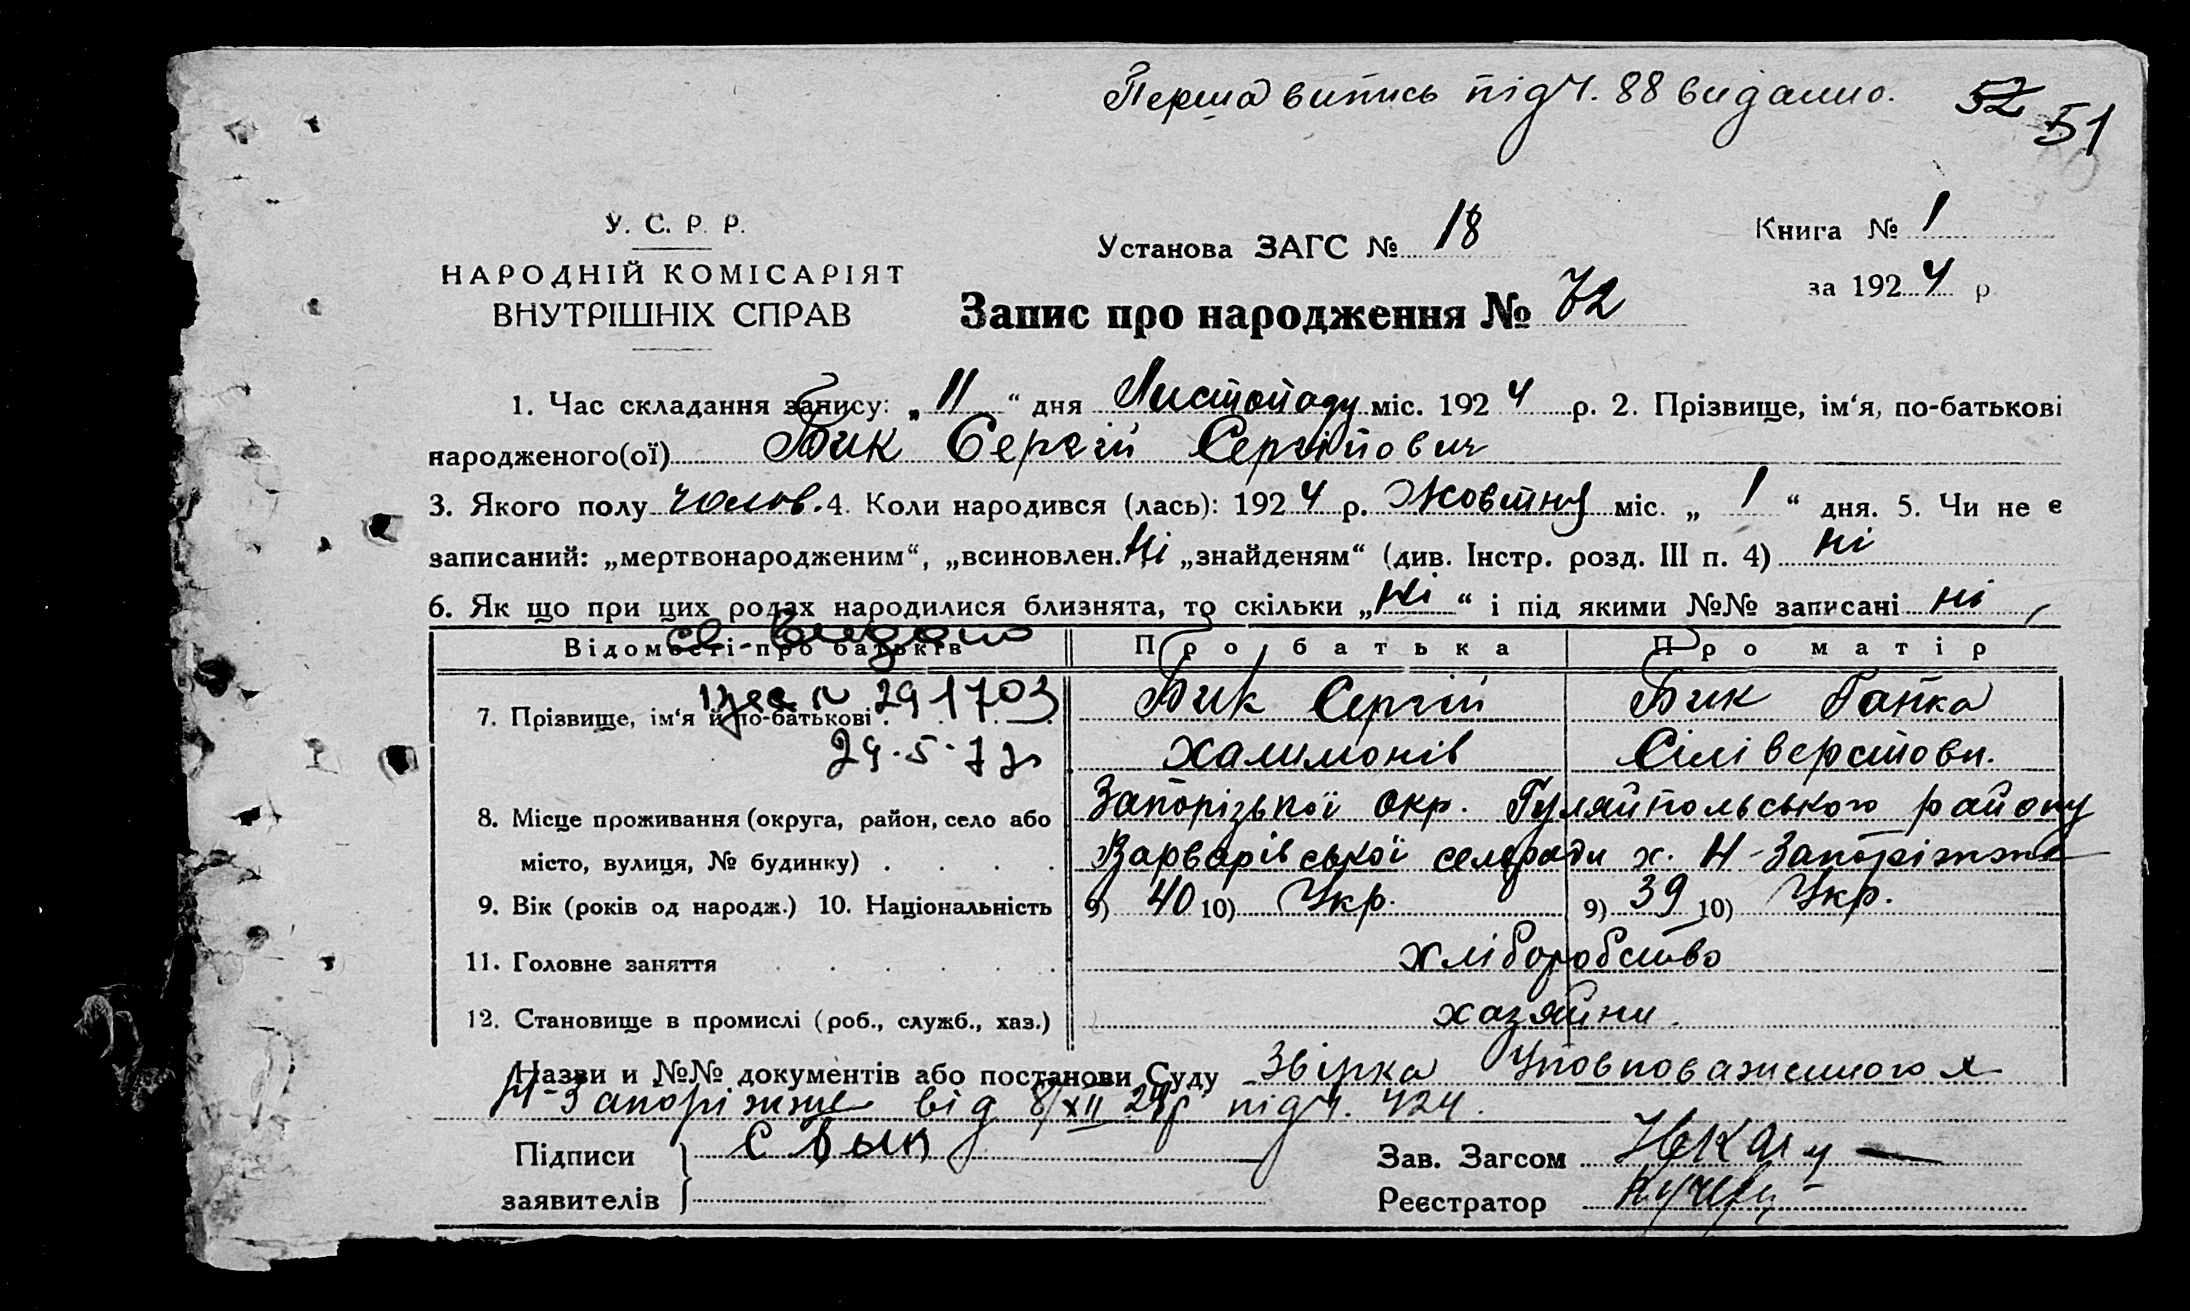 Перша випись під Ч. 88 видапно. 52 51
У. С. Р. Р.
НАРОДНІЙ КОМІСАРІЯТ
ВНУТРІШНІХ СПРАВ
Установа ЗАГС № 18
Книга № 1
за 1924 р
Запис про народження № 72
1. Час складання запису: „ 11 “ дня Листопаду міс. 1924 р. 2. Прізвище, ім‘я, по-батькові
народженого(ої) Бик Сергій Сергійович
3. Якого полу чолов. 4. Коли народився (лась): 1924 р. Жовтня міс. „ 1 “ дня. 5. Чи не є
записаний: „мертвонародженим“, „всиновлен. Ні „знайденям“ (див. Інстр. розд. III п. 4) ні
6. Як що при цих родах народилися близнята, то скільки „ Ні “ і під якими №№ записані ні
Відомості про батьків Про батька Про матір
св-видано
7. Прізвище, ім‘я й по-батькові Бик Сергій Бик Гапка
291703
Халимонів Сіліверстовн.
8. Місце проживання (округа, район, село або Запорізької окр. Гуляйпольського району
місто, вулиця, № будинку) Варварівської сельради х. Н-Запоріжже
9. Вік (років од народж.) 10. Національність 9) 40 10) Укр. 9) 39 10) Укр.
11. Головне заняття хліборобство
12. Становище в промислі (роб., служб., хаз.) хазяйни.
Назви и №№ документів або постанови Суду Звірка Уповноваженного х
Н-Запоріжже від 8/XII 24р під Ч. 424.
Підписи
заявителів } С Бык
Зав. Загсом
Реєстратор